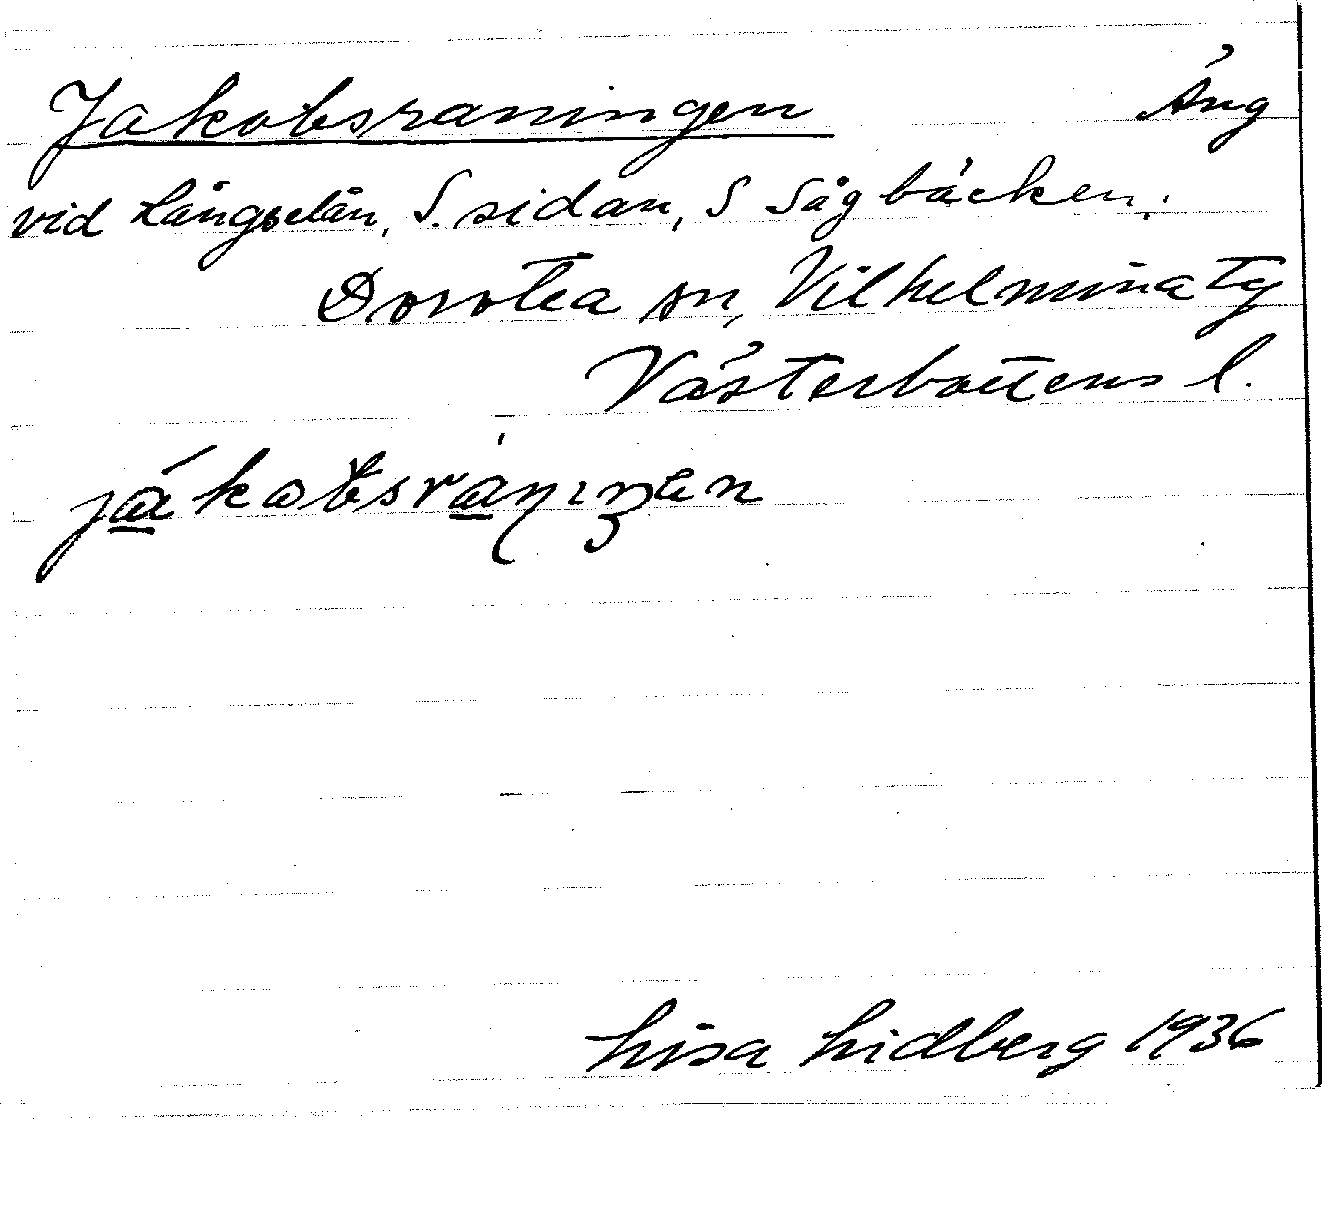 Jakobsraningen Äng
vid Långselån, S. sidan, S Sågbäcken.
Dorotea sn, Vilhelmina tg
Västerbottens l.
jákobsrànıŋen
Lisa Lidberg 1936